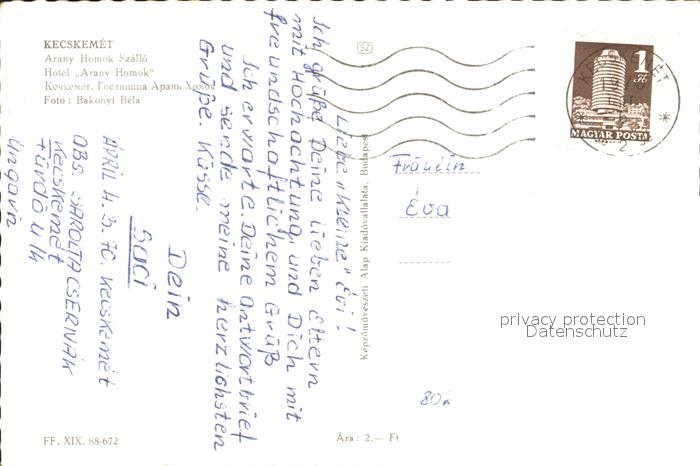 KECSKEMÉT
Arany Homok Szálló
Hotel „Arany Homok"
Кечкемет. Гостиница Арань Хомок
Foto : Bakonyi Béla
Liebe „Kleine" Évi!
Ich grüße Deine lieben Eltern
mit Hochachtung, und Dich mit
freundschaftlichem Gruß
Ich erwarte Deine Antwortbrief
und sende meine herzlichsten
Grüße. Küsse.
Dein
Saci
ÁPRIL 4. 3. 70. Kecskemét
ABS. SAROLTA CSERNÁK
Kecskemét
Fürdő u 14
Ungarn
FF. XIX. 88-672
Ára : 2.— Ft
Képzőművészeti Alap Kiadóvállalata, Budapest
SZ
1
Ft
MAGYAR POSTA
KECSKEMÉT
Fräulein
Éva
privacy protection
Datenschutz
802